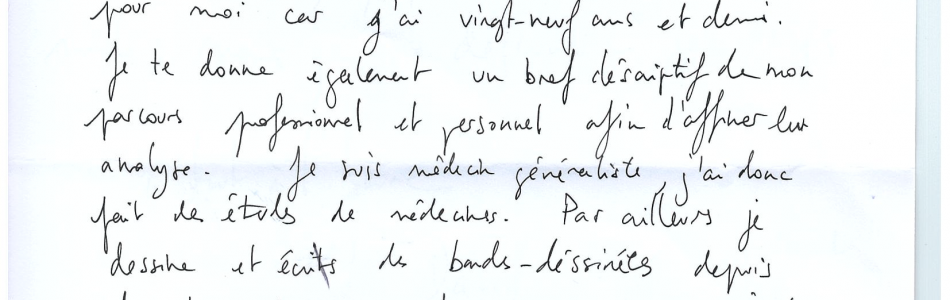 pour moi car j'ai vingt-neuf ans et demi.
Je te donne également un bref désciptif de mon
parcours professionnel et personnel afin d'affiner leur
analyse. Je suis médecin généraliste, j'ai donc
fait des études de médecines. Par ailleurs je
dessine et écrits des bandes-déssinées depuis